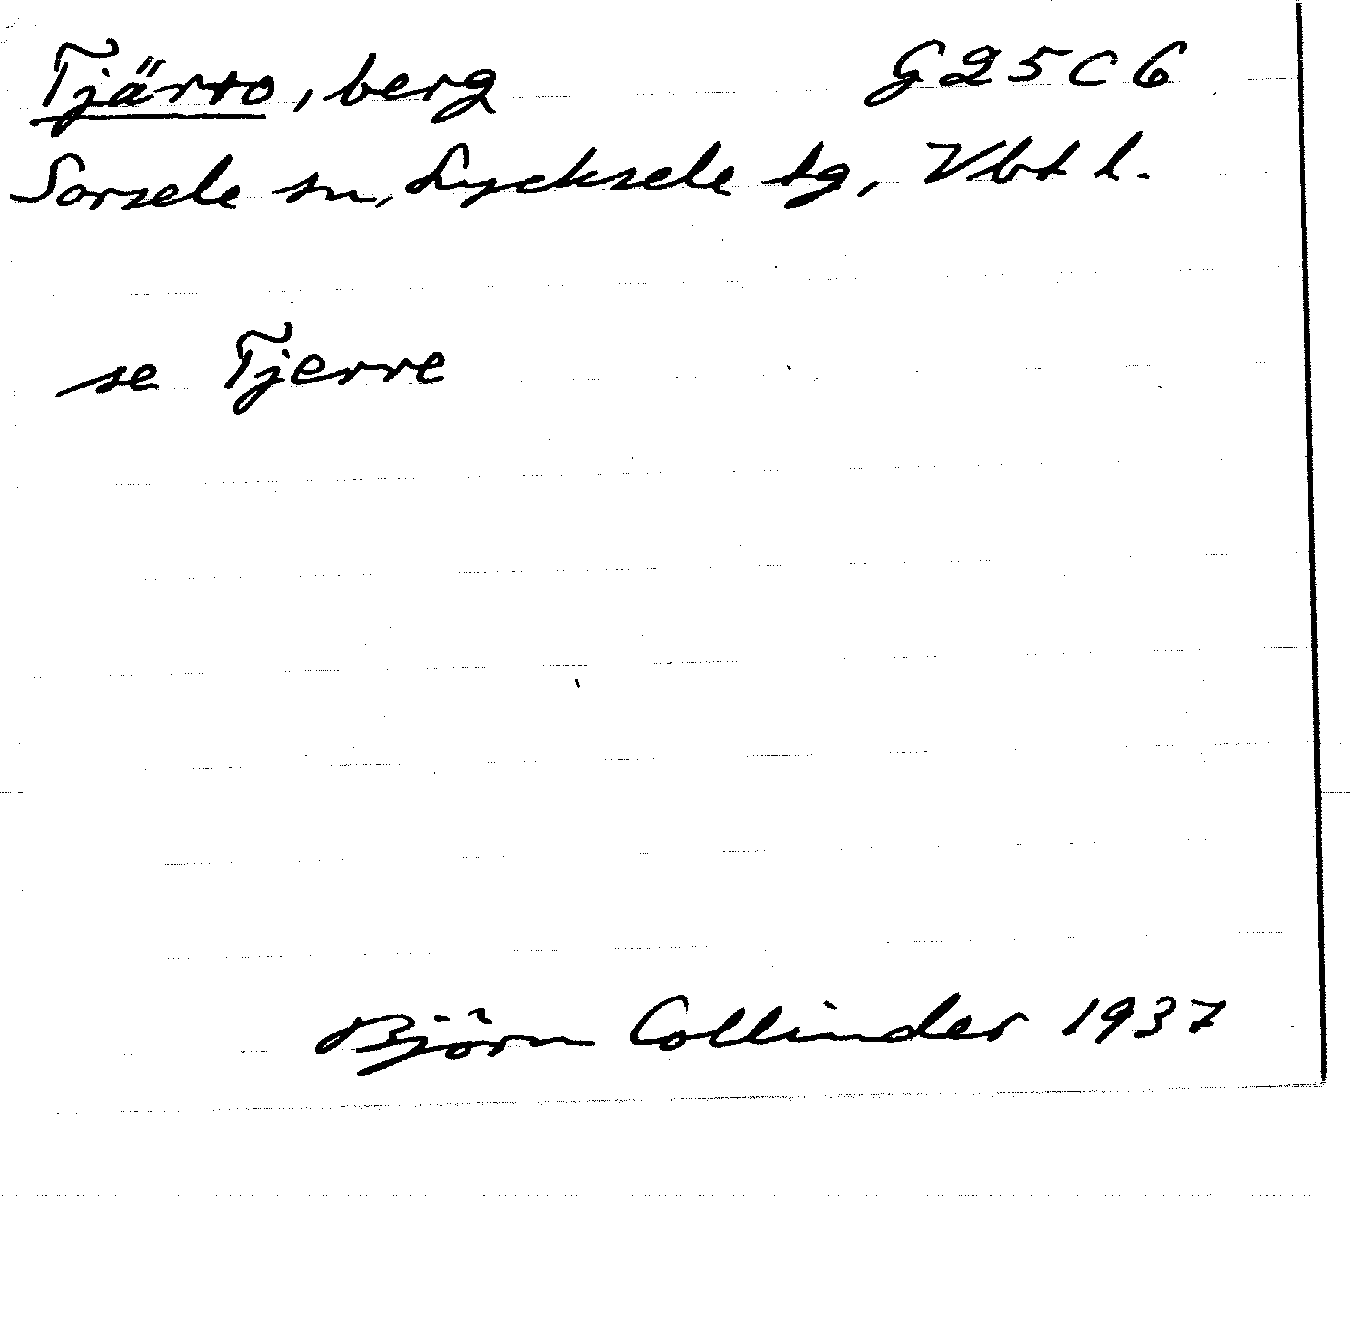 Tjärro, berg G25C6
Sorsele sn, Lycksele tg, Vbt l.
se Tjerre
Björn Collinder 1937